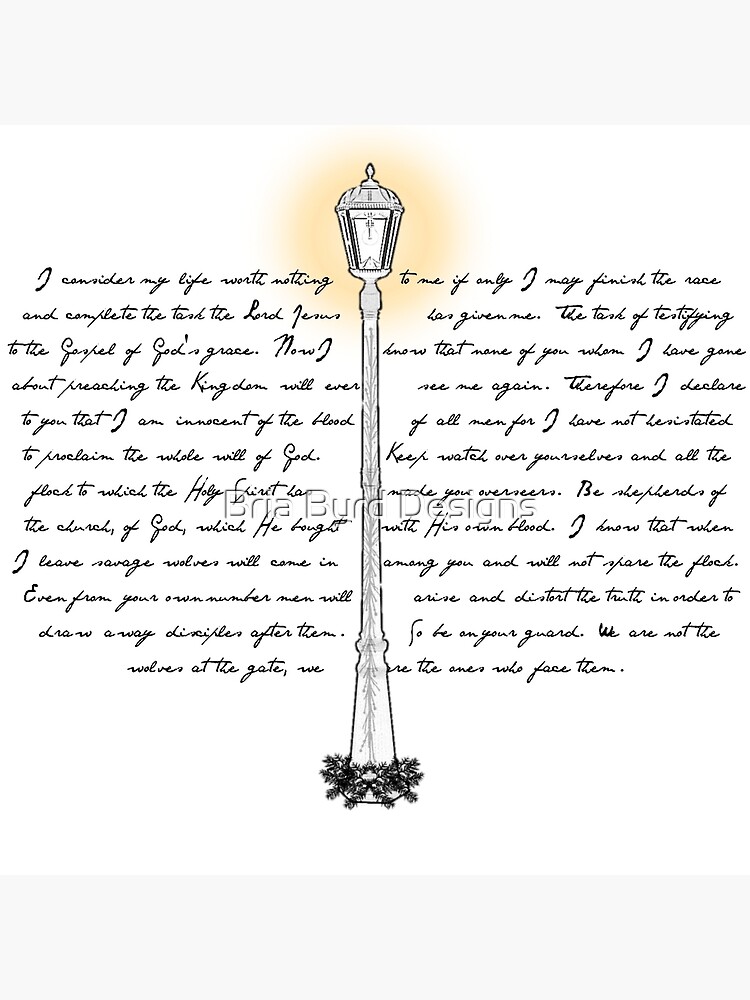 I consider my life worth nothing to me if only I may finish the race
and complete the task the Lord Jesus has given me. The task of testifying
to the Gospel of God's grace. Now I know that none of you whom I have gone
about preaching the Kingdom will ever see me again. Therefore I declare
to you that I am innocent of the blood of all men for I have not hesistated
to proclaim the whole will of God. Keep watch over yourselves and all the
flock to which the Holy Spirit has made you overseers. Be shepherds of
Bria Burd Designs
the church, of God, which He bought with His own blood. I know that when
I leave savage wolves will come in among you and will not spare the flock.
Even from your own number men will arise and distort the truth in order to
draw away disciples after them. So be on your guard. We are not the
wolves at the gate, we are the ones who face them.